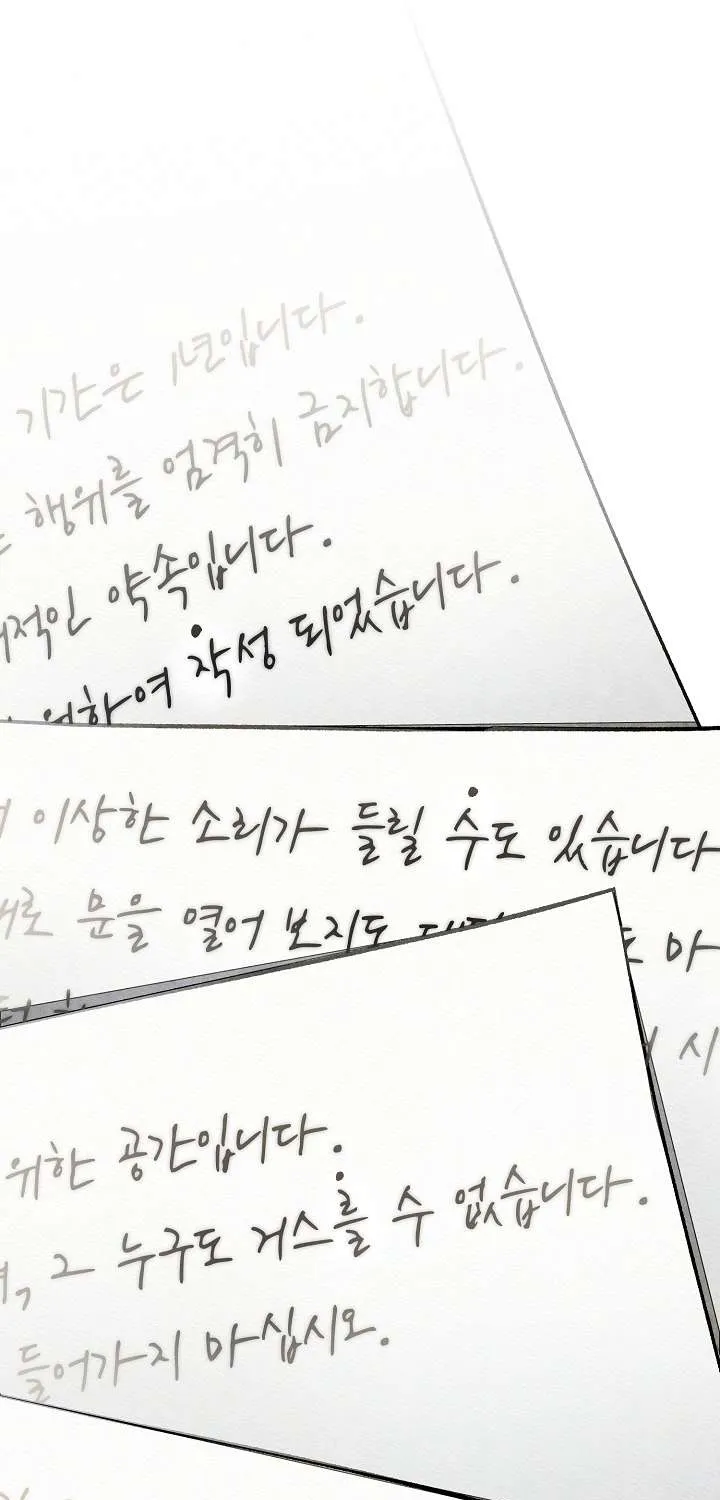 기간은 1년입니다.
행위를 엄격히 금지합니다.
약속입니다.
위하여 작성 되었습니다.
이상한 소리가 들릴 수도 있습니다
문을 열어 보지도
마
시
위한 공간입니다.
그 누구도 거스를 수 없습니다.
들어가지 마십시오.